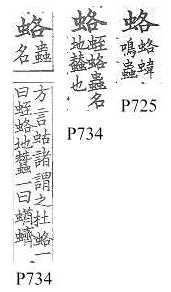 蛒
蟲
名
方言蛄諸謂之杜蛒一
曰蛭蛒地蠶一曰蝤蠐
P734
蛒
蛭蛒蟲名
地蠶也
P734
蛒
蛒
鳴蟲
P725